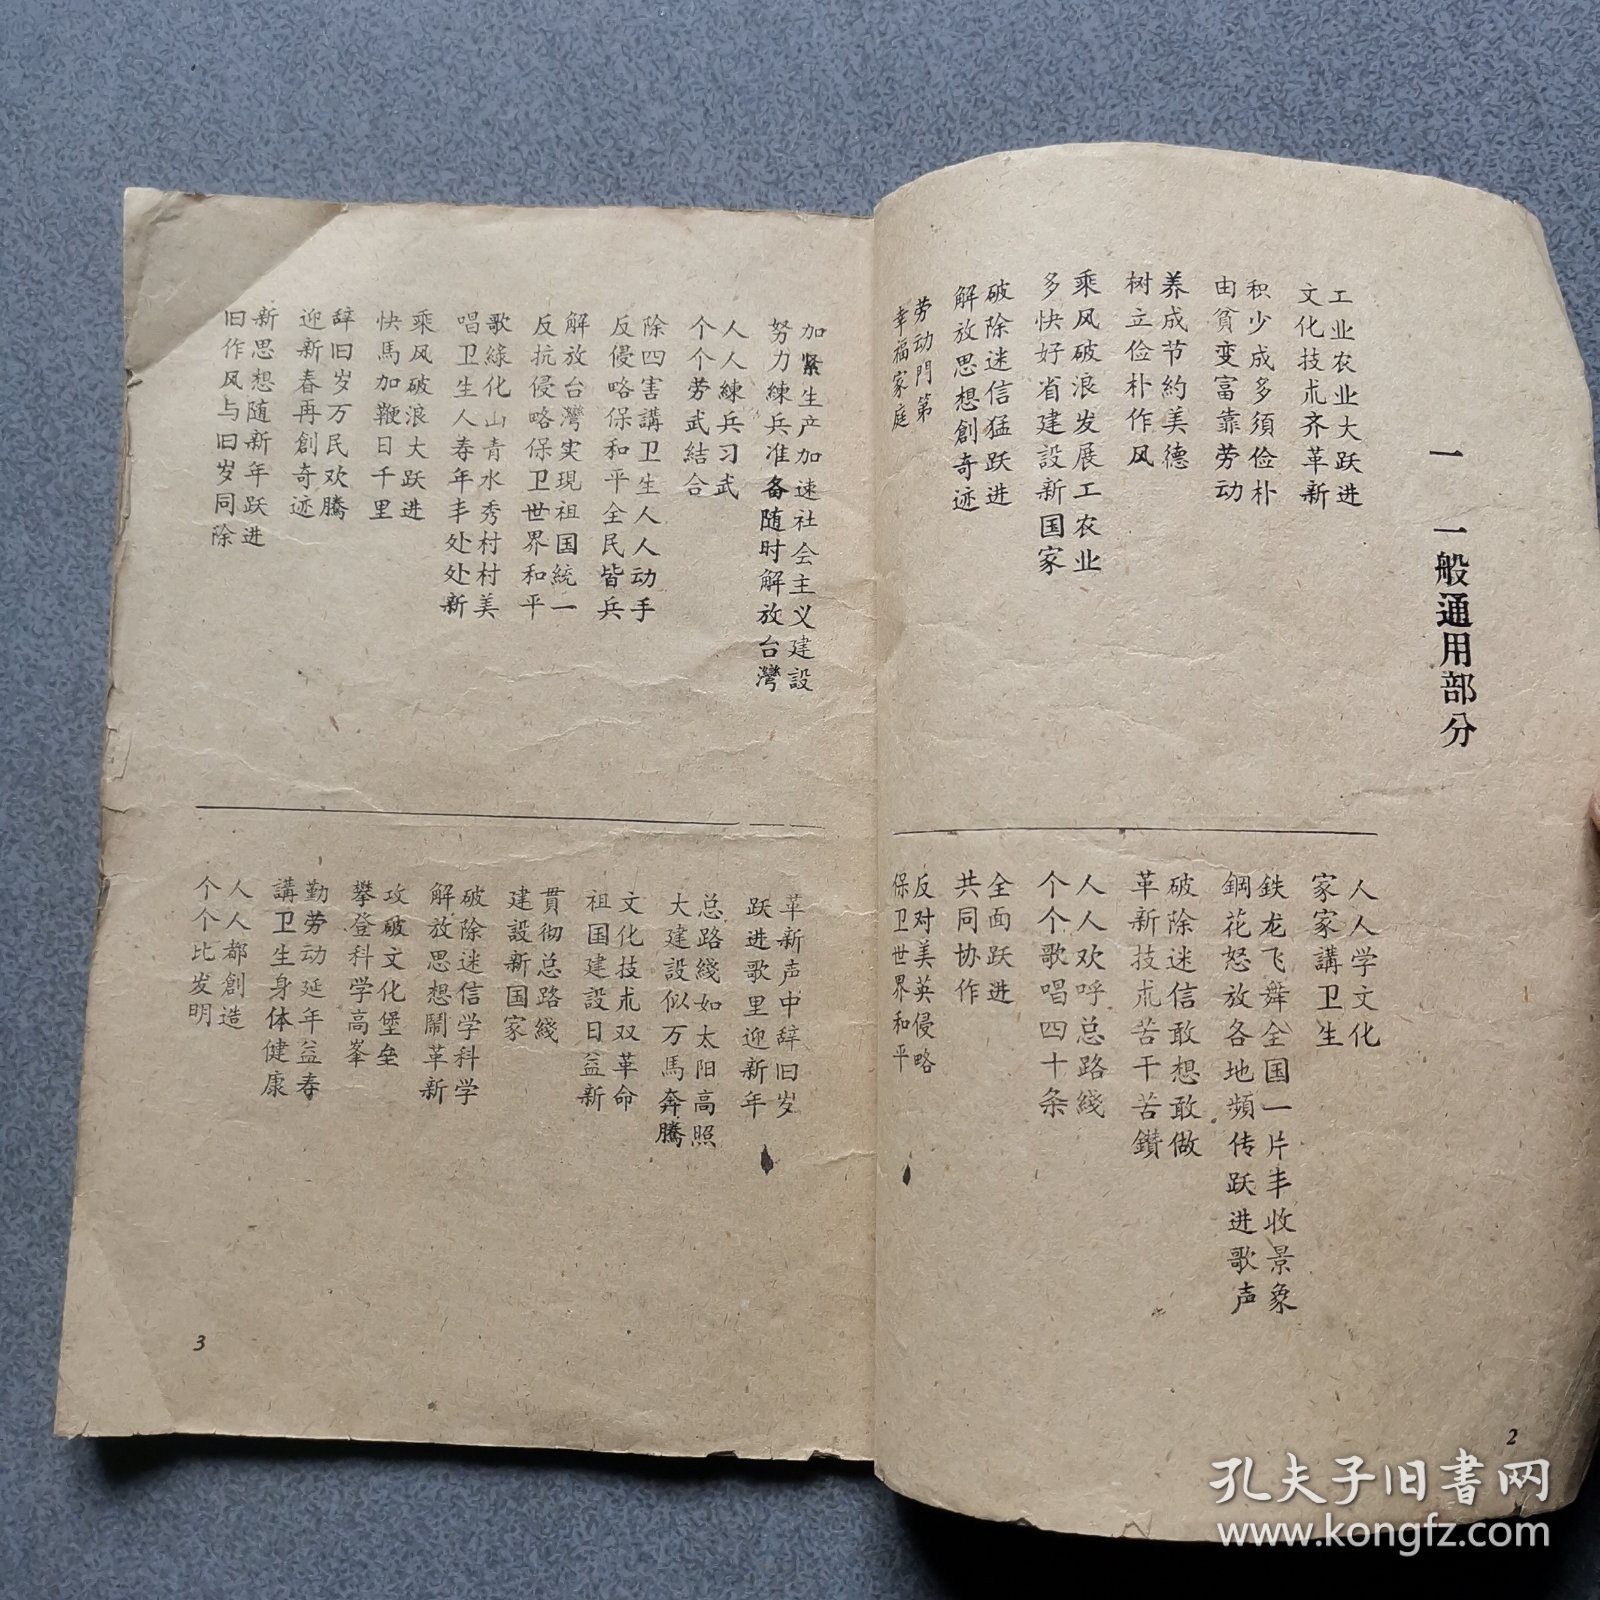 一 一般通用部分
工业农业大跃进
文化技朮齐革新
积少成多須俭朴
由貧变富靠劳动
养成节約美德
树立俭朴作风
乘风破浪发展工农业
多快好省建設新国家
破除迷信猛跃进
解放思想創奇迹
劳动門第
幸福家庭
人人学文化
家家講卫生
鉄龙飞舞全国一片丰收景象
鋼花怒放各地頻传跃进歌声
破除迷信敢想敢做
革新技朮苦干苦鑽
人人欢呼总路綫
个个歌唱四十条
全面跃进
共同协作
反对美英侵略
保卫世界和平
2
加紧生产加速社会主义建設
努力練兵准备随时解放台灣
人人練兵习武
个个劳武結合
除四害講卫生人人动手
反侵略保和平全民皆兵
解放台灣实現祖国統一
反抗侵略保卫世界和平
歌綠化山青水秀村村美
唱卫生人寿年丰处处新
乘风破浪大跃进
快馬加鞭日千里
辞旧岁万民欢騰
迎新春再創奇迹
新思想随新年跃进
旧作风与旧岁同除
革新声中辞旧岁
跃进歌里迎新年
总路綫如太阳高照
大建設似万馬奔騰
文化技朮双革命
祖国建設日益新
贯彻总路綫
建設新国家
破除迷信学科学
解放思想鬧革新
攻破文化堡垒
攀登科学高峯
勤劳动延年益寿
講卫生身体健康
人人都創造
个个比发明
3
孔夫子旧書网
www.kongfz.com